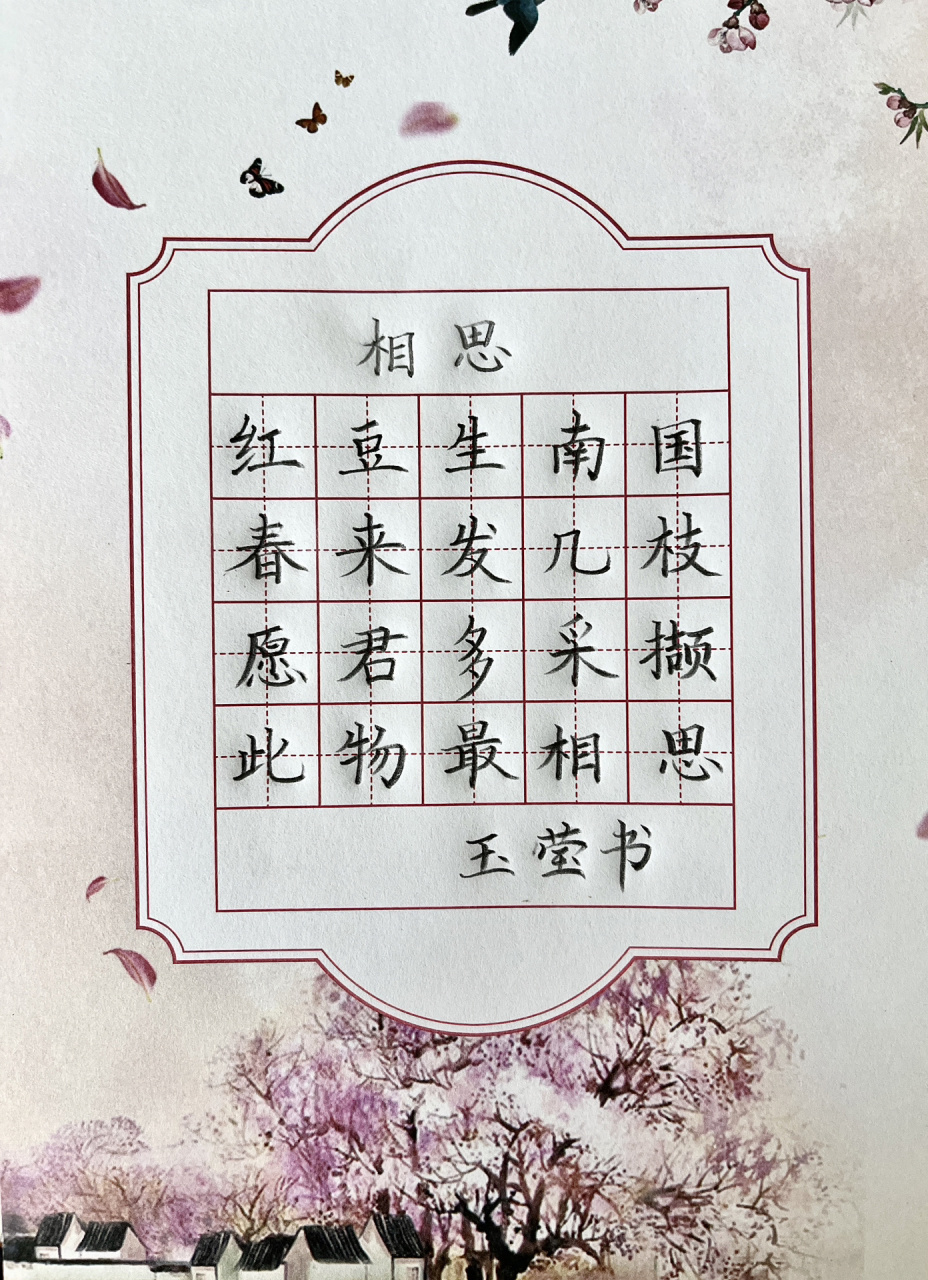 相思
红豆生南国
春来发几枝
愿君多采撷
此物最相思
玉莹书